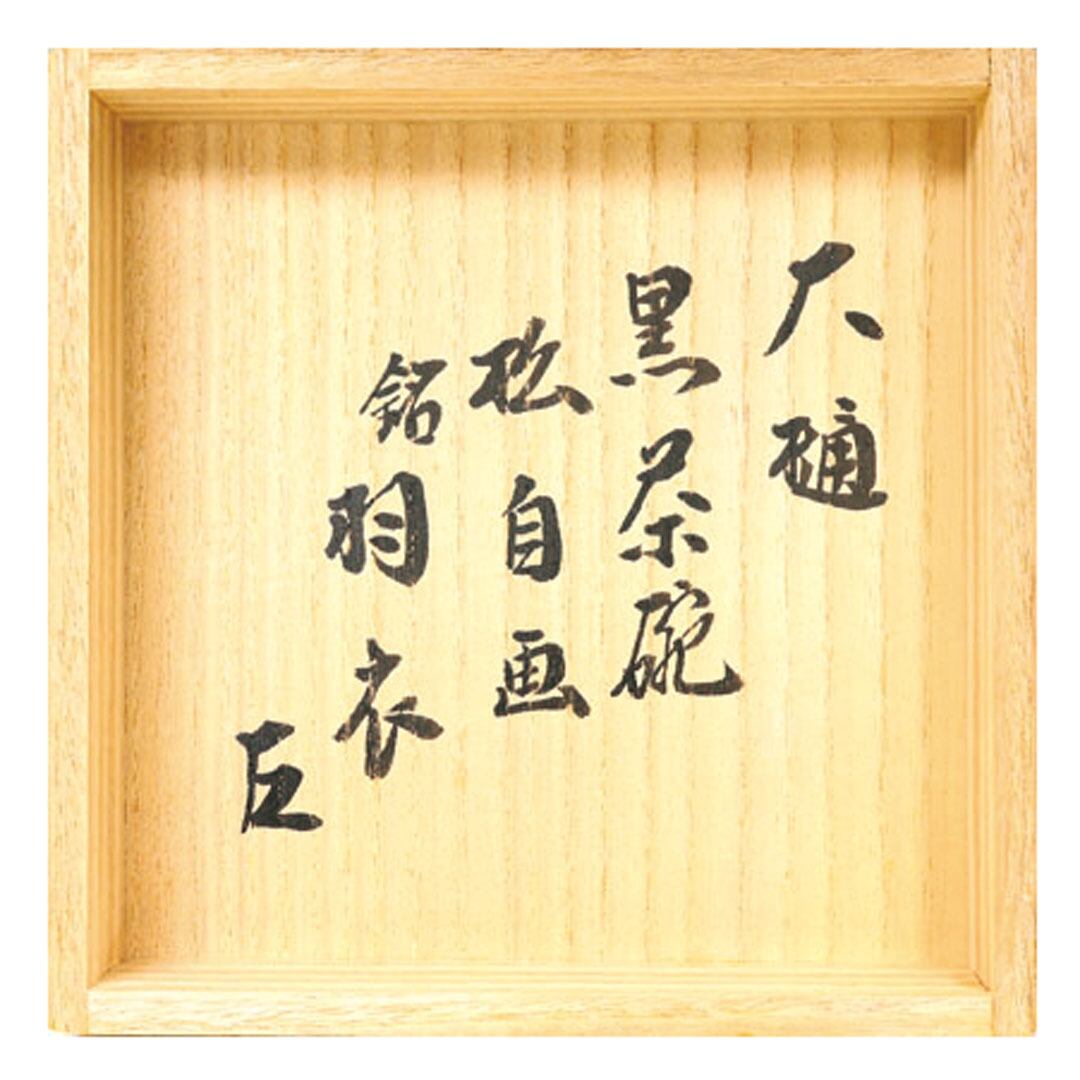 大樋
黒茶碗
松自画
銘羽衣
巨